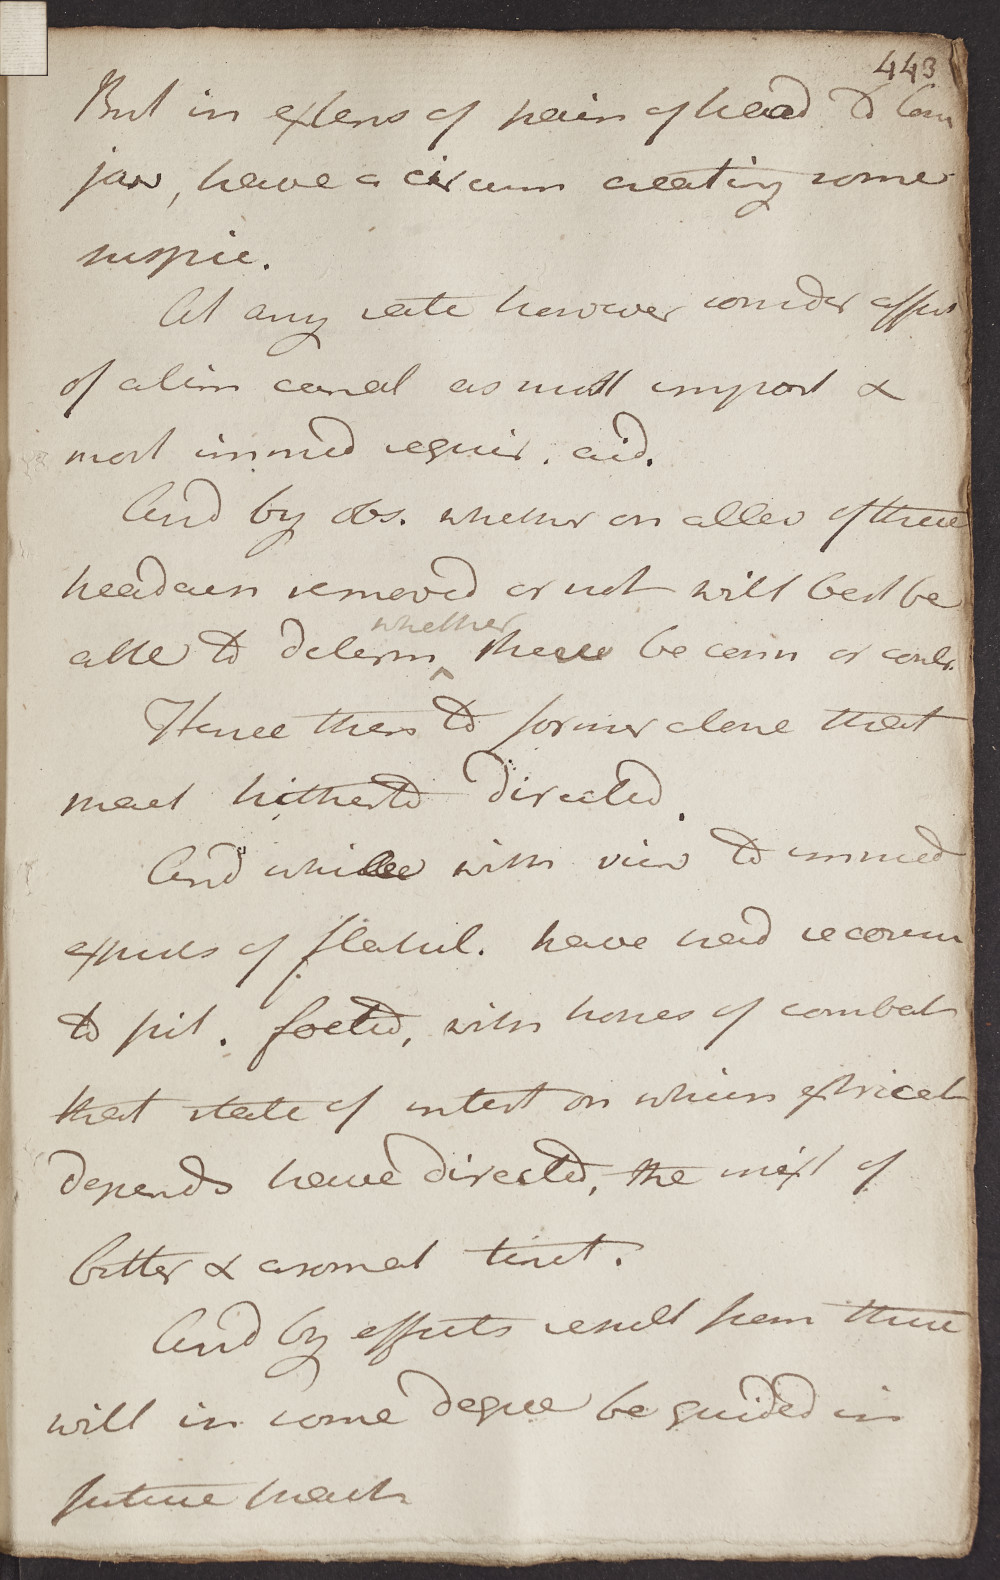 443
But in extens of pain of head to low
jaw, have a circum creating some
suspic.
At any rate however consider affect
of alim canal as most import &
most immed requir. aid.
And by obs. whether on allev of these
headach removed or not will best be
able to determ whether there be conn or contr.
Hence then to former alone that
pract hitherto directed.
And while with view to immed
expuls of flatul. have had recours
to pil. foetid, with hopes of combat
that state of intest on which extricat
depends have directed, the mixt of
bitter & aromat tinct.
And by effects result from these
will in some degree be guided in
future pract